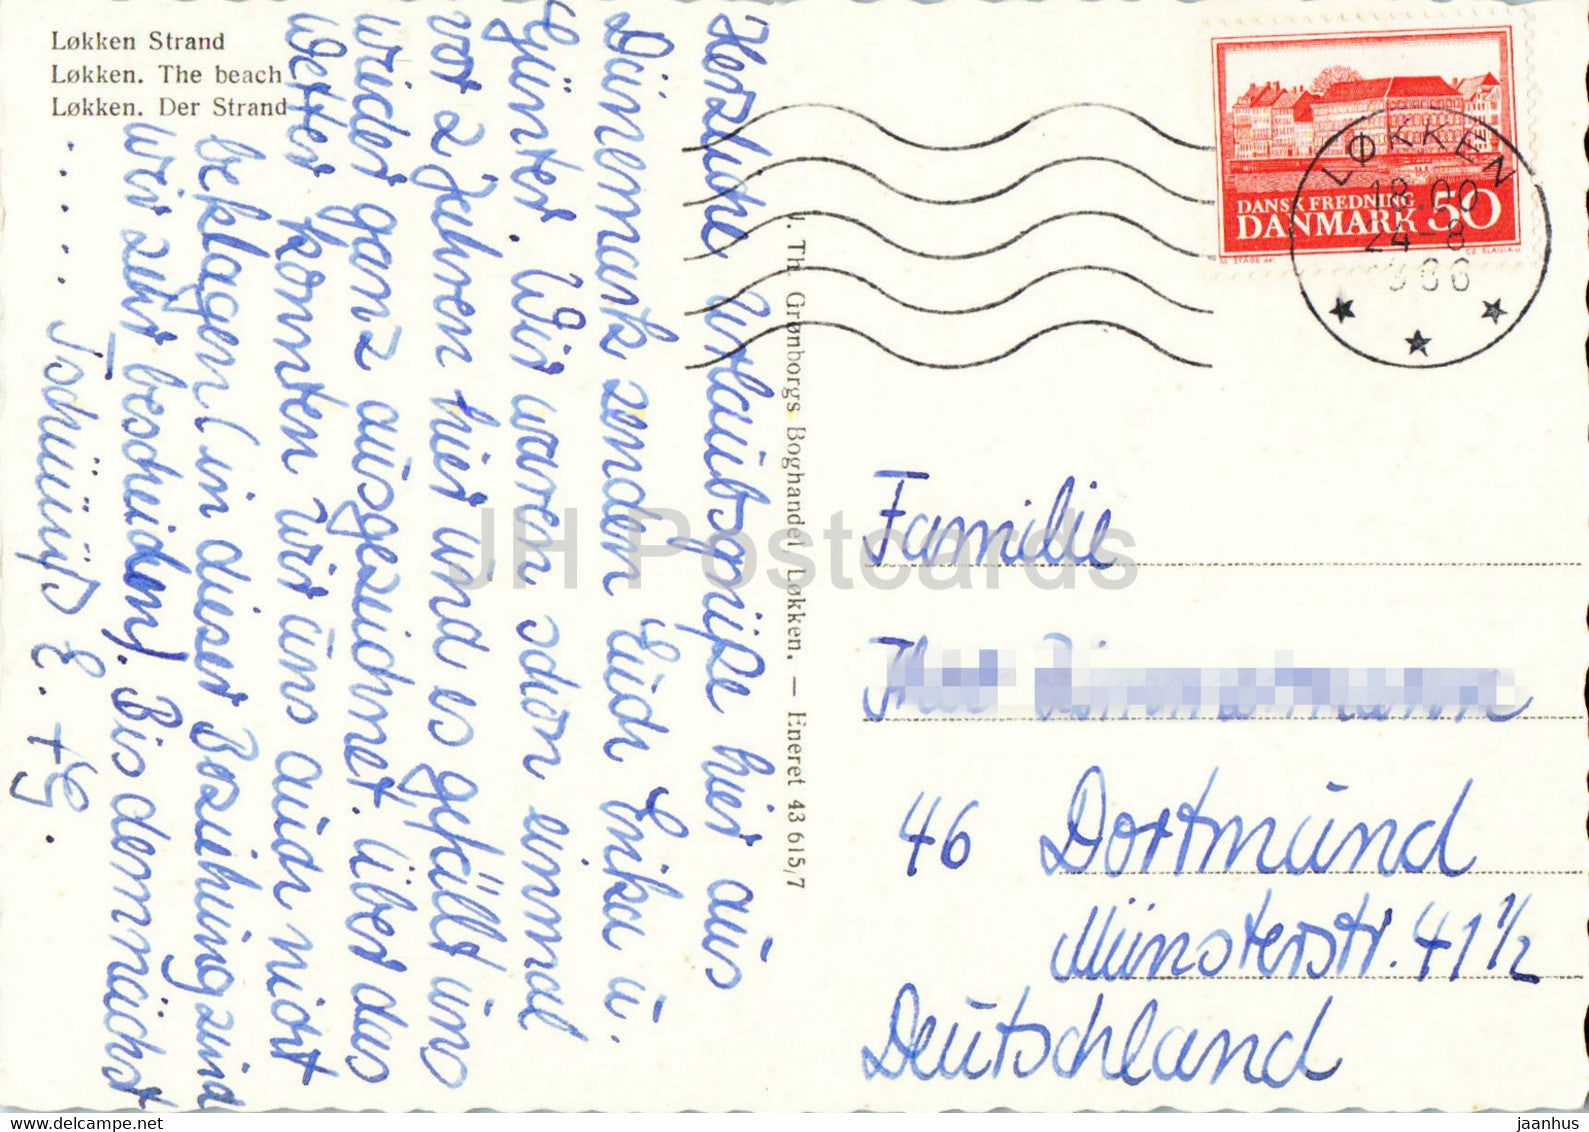 Løkken Strand
Løkken. The beach
Løkken. Der Strand
Herzliche Urlaubsgrüße hier aus
Dänemark senden Euch Erika u.
Günter. Wir waren schon einmal
vor 2 Jahren hier und es gefällt uns
wieder ganz ausgezeichnet. Über das
Wetter konnten wir uns auch nicht
beklagen (in dieser Beziehung sind
wir sehr bescheiden). Bis demnächst
. . . . . Tschüüüß E. + G.
J. Th. Grønborgs Boghandel, Løkken. — Eneret 43 615/7
DANSK FREDNING
DANMARK 50
LØKKEN
18.00
24-8
Familie
46 Dortmund
Münsterstr. 41 1/2
Deutschland
JH Postcards
jaanhus
www.delcampe.net